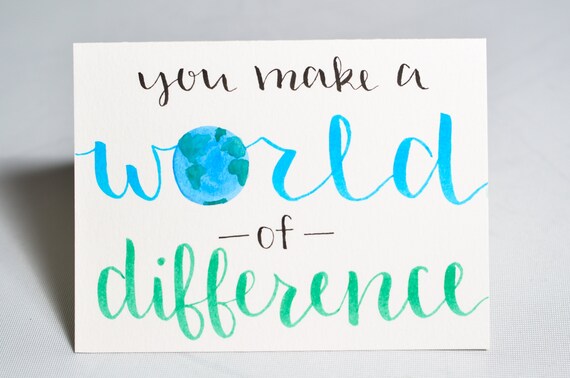 you make a
world
- of -
difference